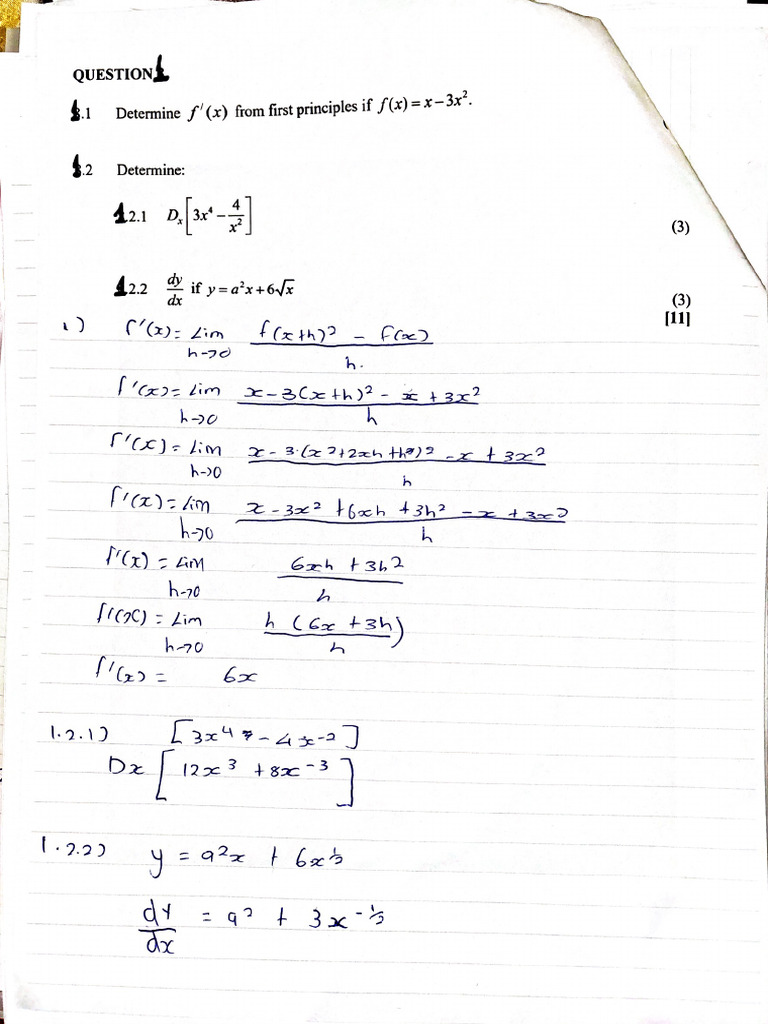 QUESTION 1
1.1 Determine f'(x) from first principles if f(x) = x − 3x².
1.2 Determine:
1.2.1 Dₓ[3x⁴ − 4/x²]
(3)
1.2.2 dy/dx if y = a²x + 6√x
(3)
[11]
1) f'(x) = Lim h→0 (f(x+h)² − f(x))/h.
f'(x) = Lim h→0 (x − 3(x+h)² − x + 3x²)/h
f'(x) = Lim h→0 (x − 3·(x²+2xh+h²)² − x + 3x²)/h
f'(x) = Lim h→0 (x − 3x² + 6xh + 3h² − x + 3x²)/h
f'(x) = Lim h→0 (6xh + 3h²)/h
f'(x) = Lim h→0 h(6x + 3h)/h
f'(x) = 6x
1.2.1) [3x⁴ − 4x⁻²]
Dx [12x³ + 8x⁻³]
1.2.2) y = a²x + 6x^½
dy/dx = a² + 3x^-½